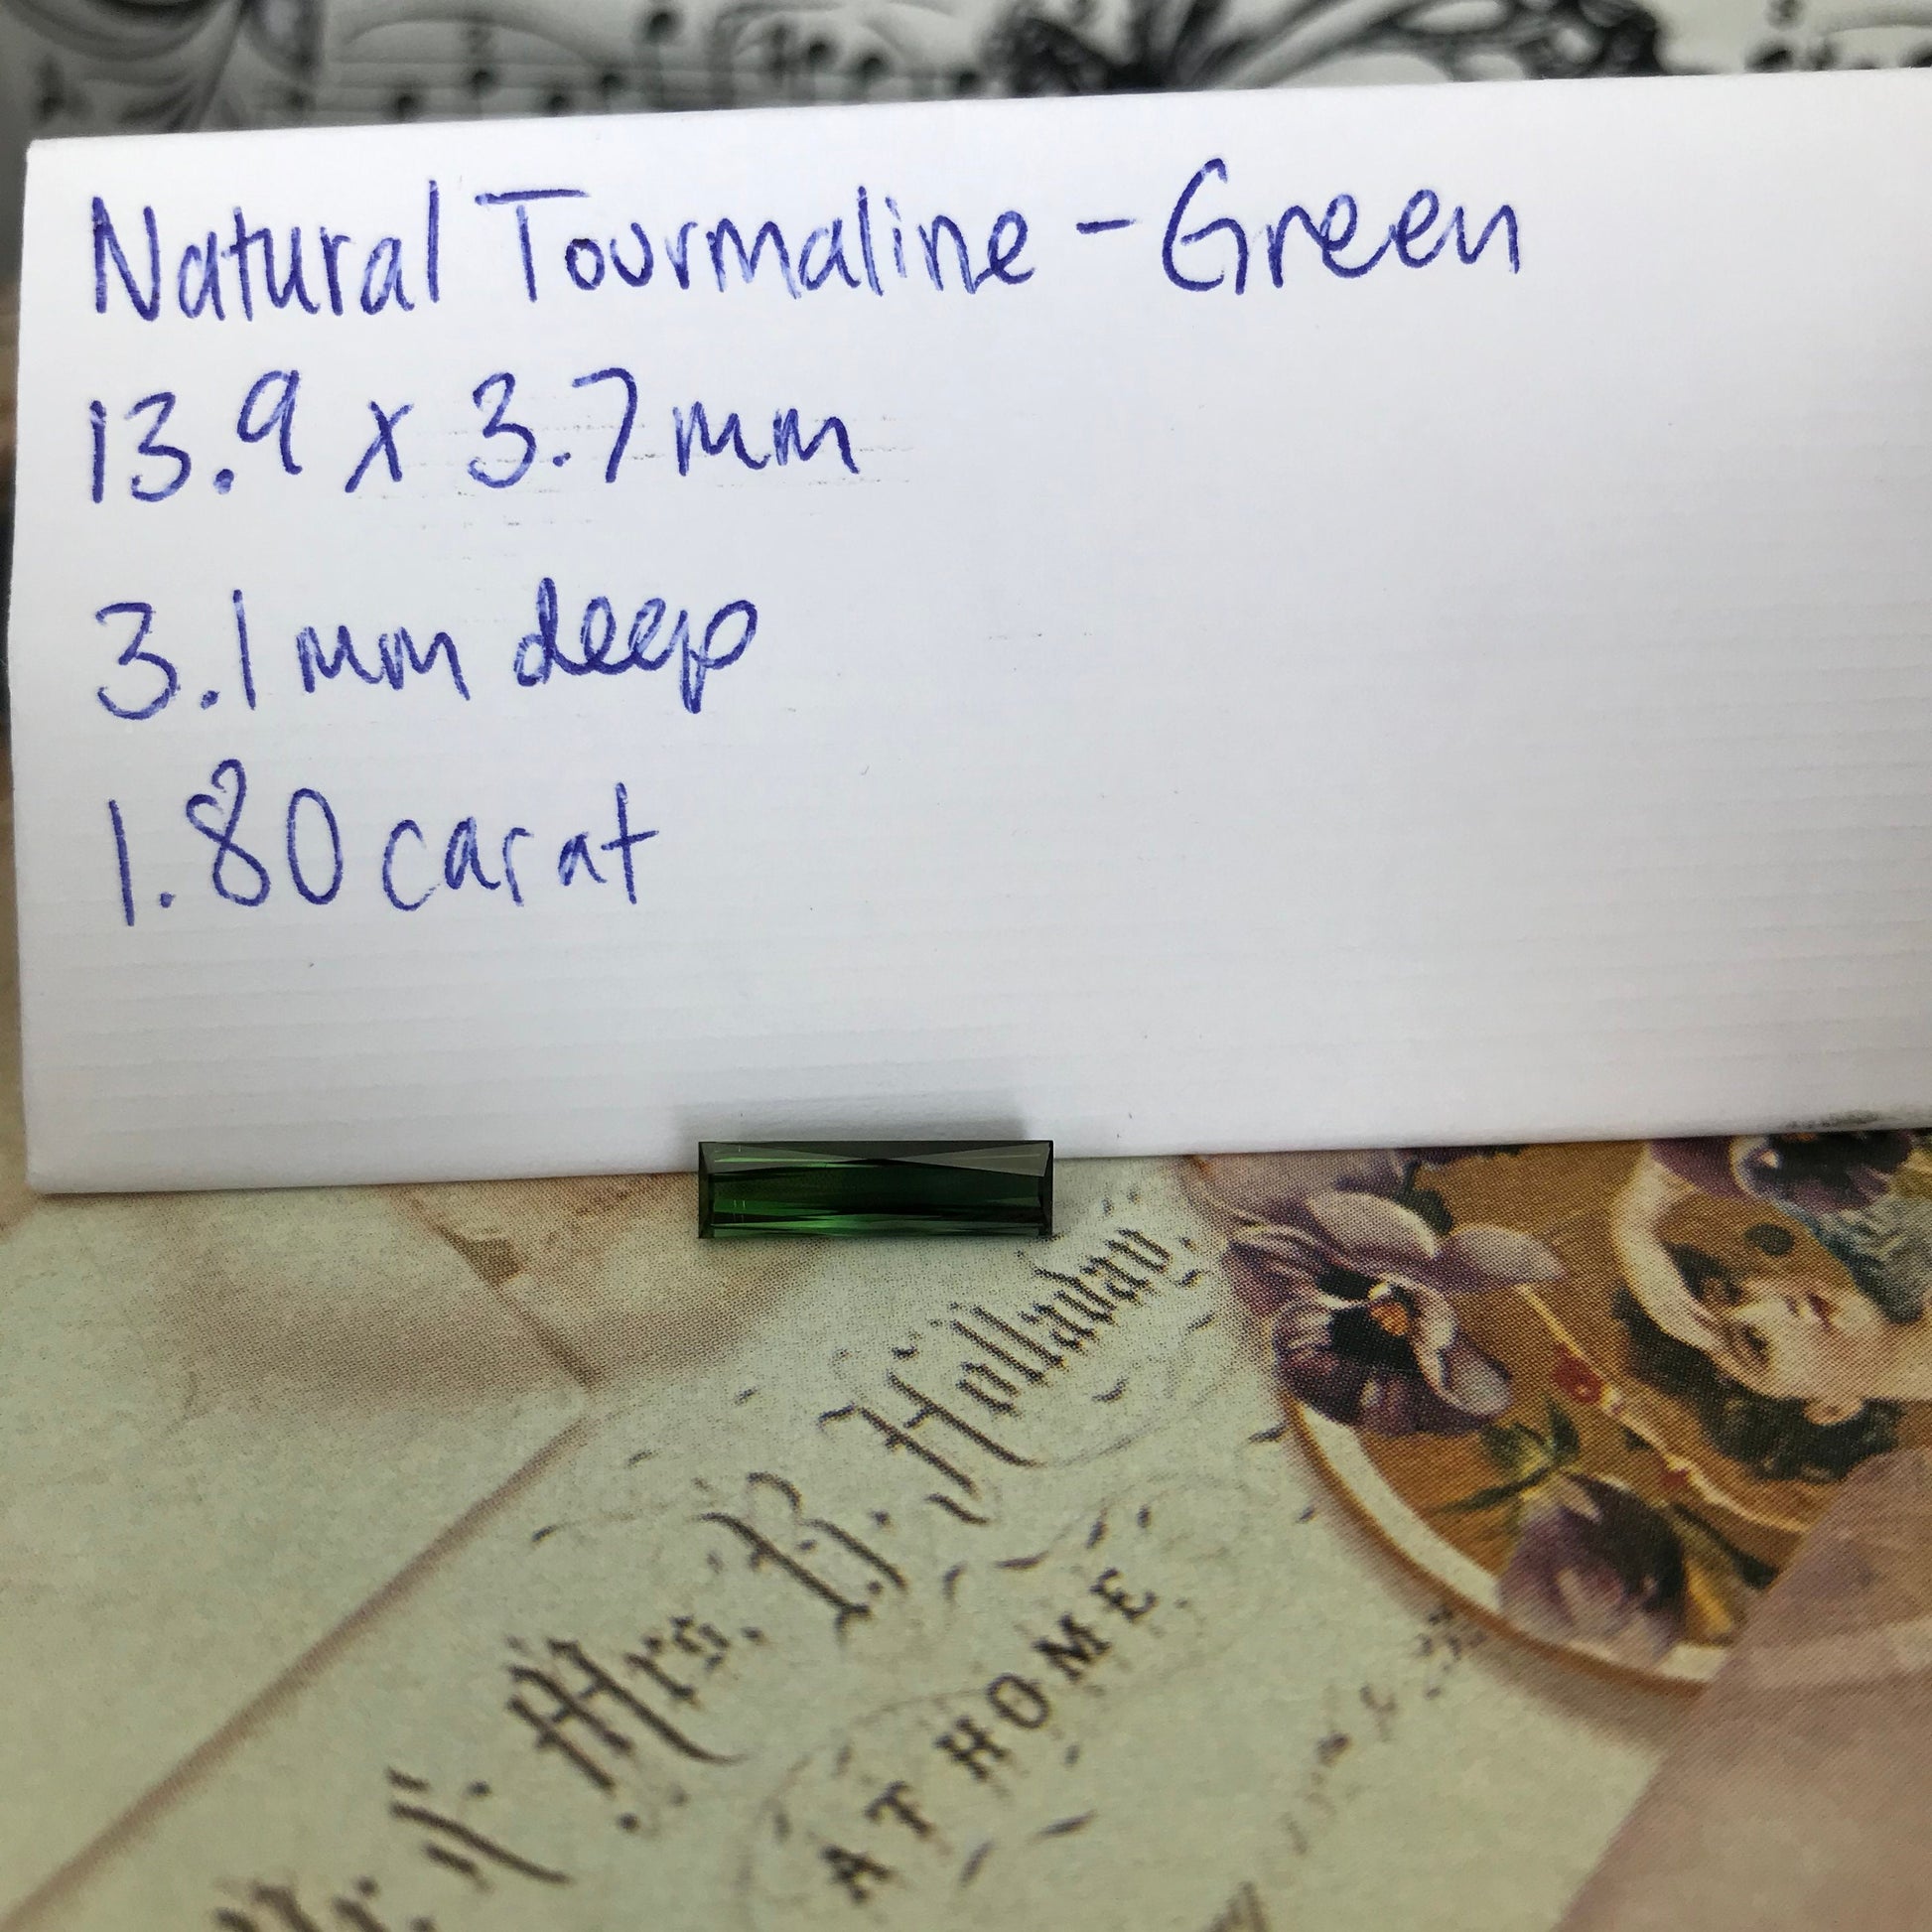 Natural Tourmaline - Green
13.9 x 3.7mm
3.1mm deep
1.80 carat
Mrs. B. Holladay.
AT HOME